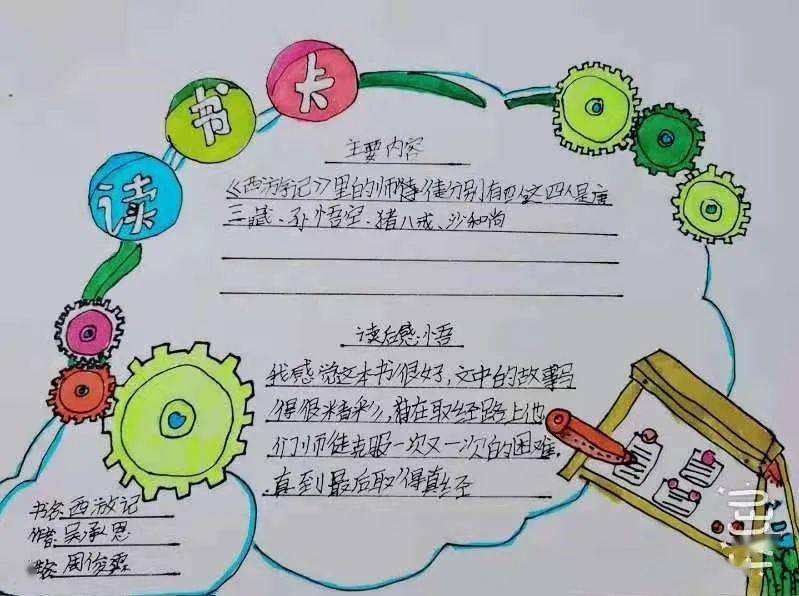 读书卡
主要内容
《西游记》里的师徒分别有四人是唐
三藏、孙悟空、猪八戒、沙和尚
读后感悟
我感觉这本书很好,文中的故事写
得很精彩,在取经路上他
们师徒克服一次又一次的困难,
直到最后取得真经
书名西游记
作者:吴承恩
周俊